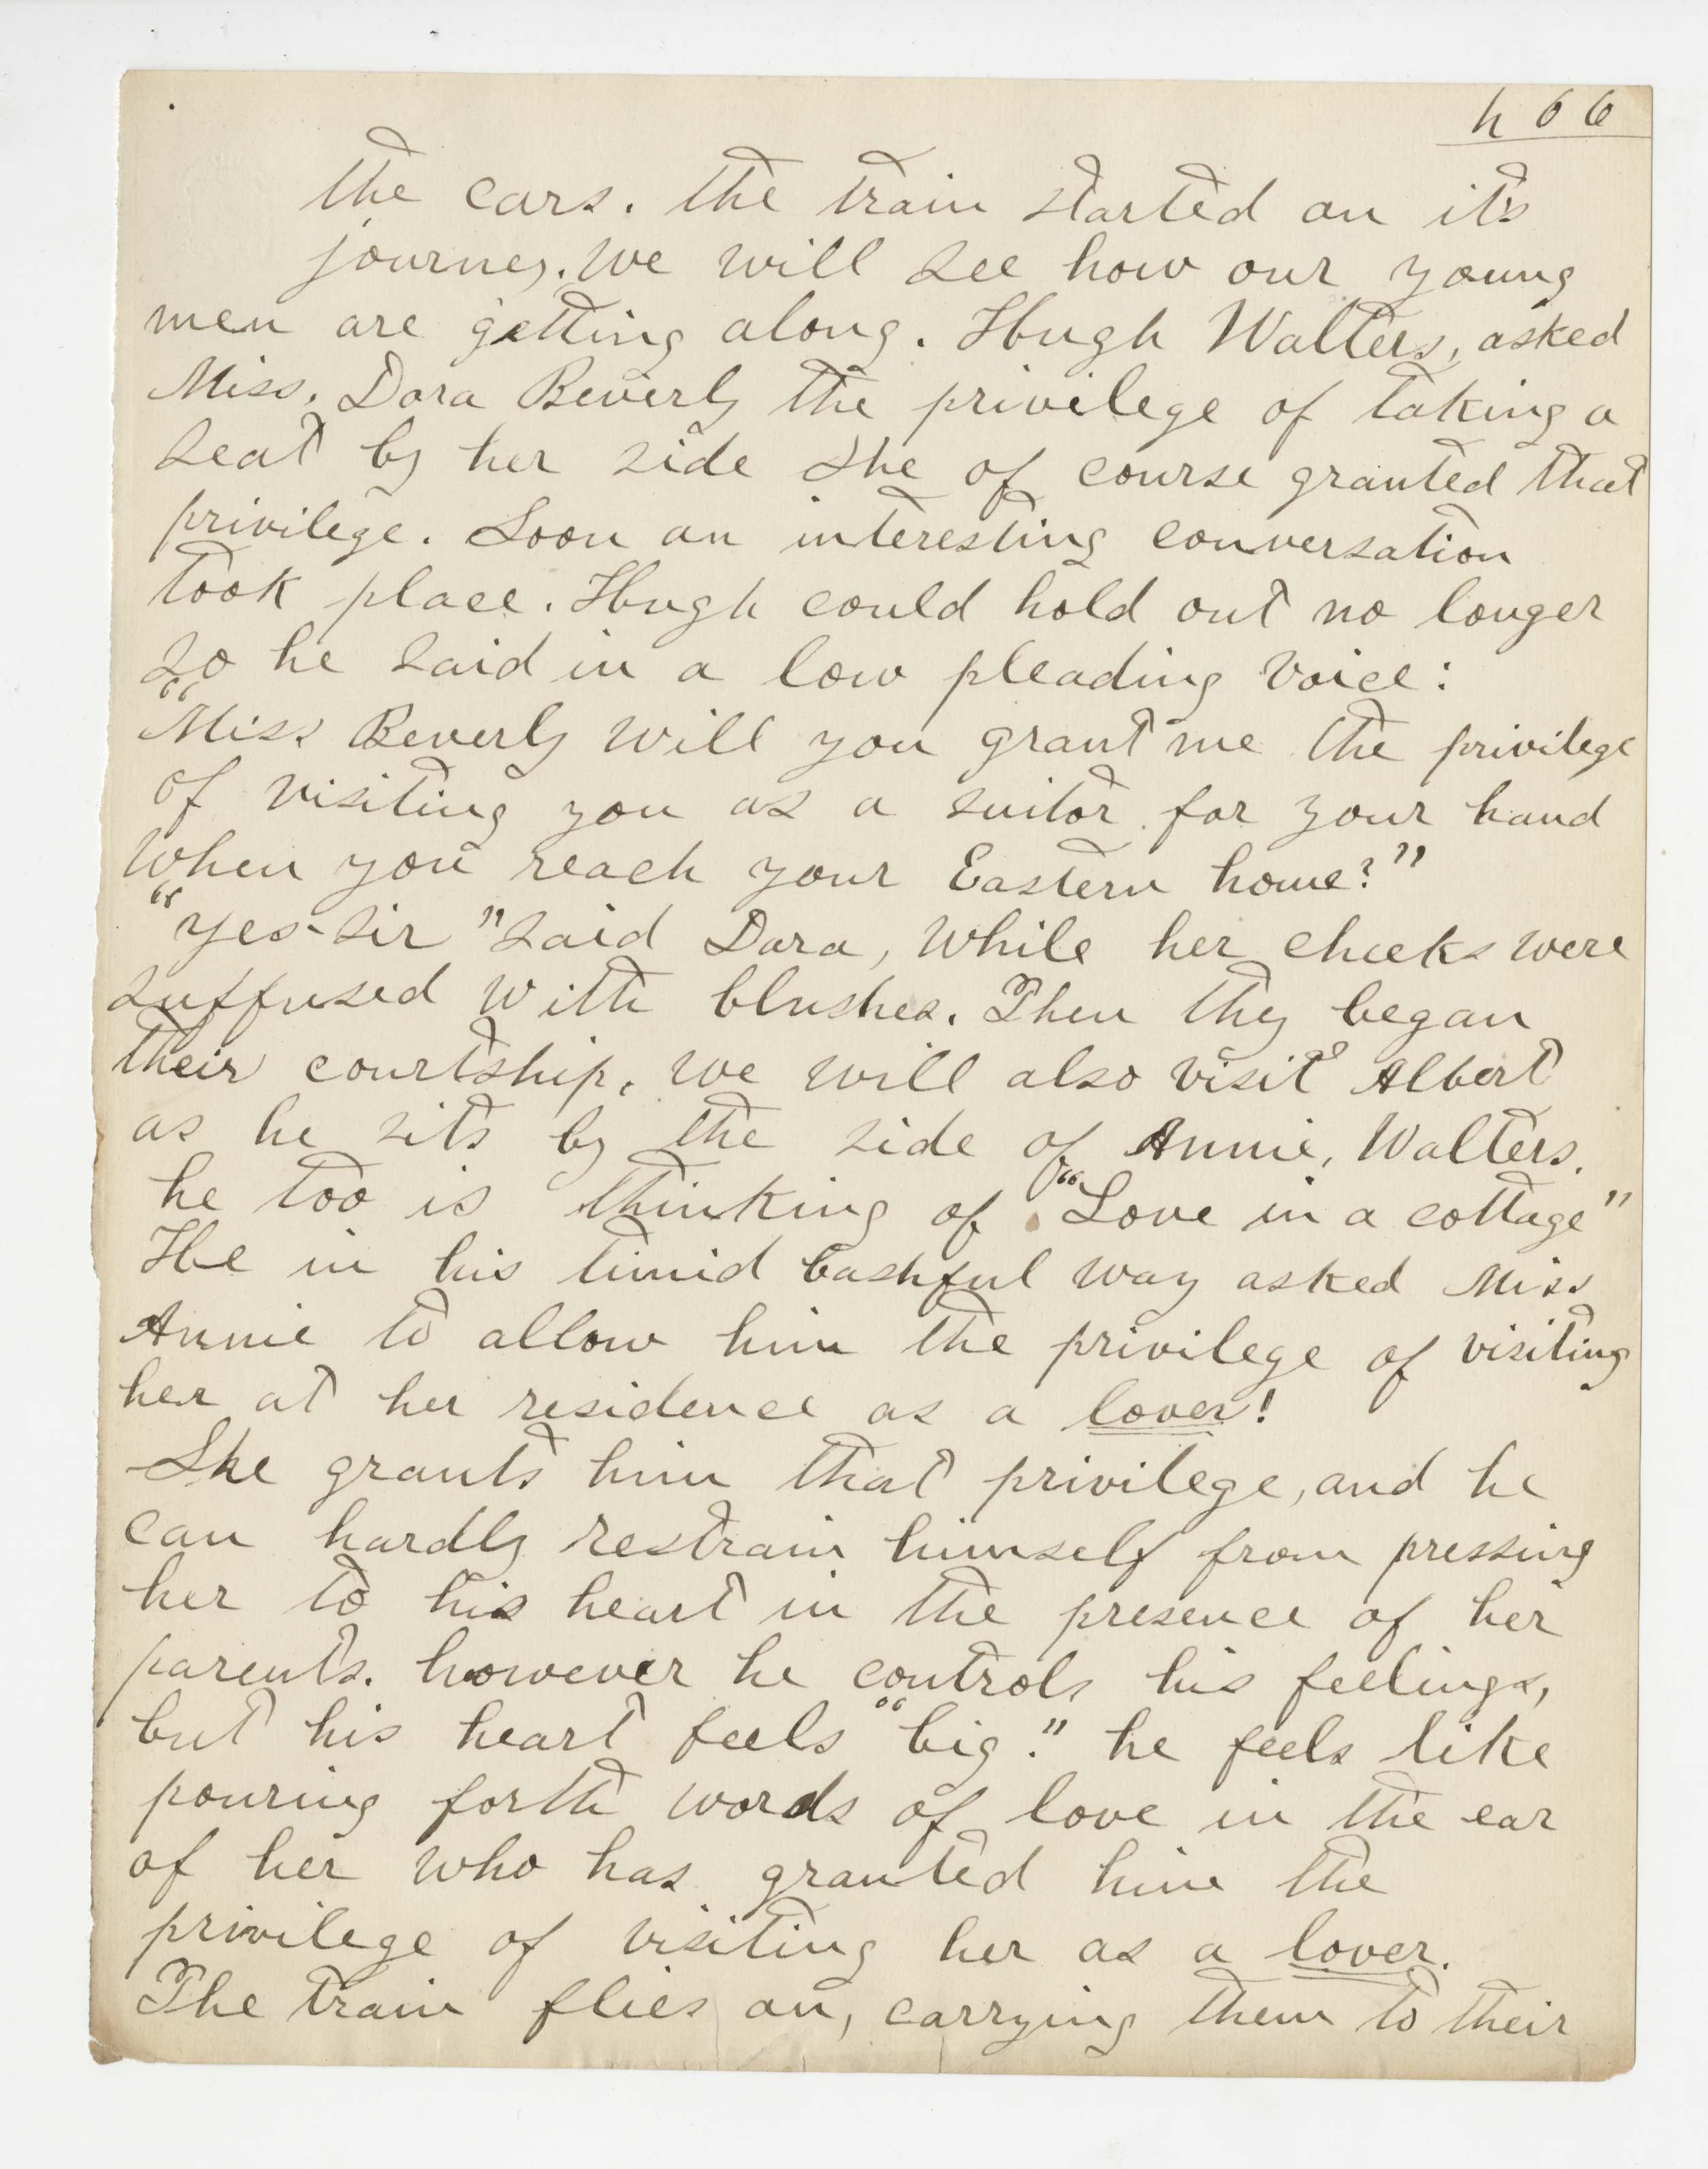 h 66
the cars. the train started on its
journey. we will see how our young
men are getting along. Hugh Walters, asked
Miss. Dora Beverly the privilege of taking a
seat by her side she of course granted that
privilege. Soon an interesting conversation
took place. Hugh could hold out no longer
so he said in a low pleading voice:
"Miss Beverly will you grant me the privilege
of visiting you as a suitor for your hand
when you reach your Eastern home?"
"yes-sir" said Dora, while her cheeks were
suffused with blushes. Then they began
their courtship. we will also visit Albert
as he sits by the side of Annie, Walters.
he too is thinking of "Love in a cottage"
He in his timid bashful way asked Miss
Annie to allow him the privilege of visiting
her at her residence as a lover!
She grants him that privilege, and he
can hardly restrain himself from pressing
her to his heart in the presence of her
parents. however he controls his feelings,
but his heart feels "big." he feels like
pouring forth words of love in the ear
of her who has granted him the
privilege of visiting her as a lover.
The train flies on, carrying them to their